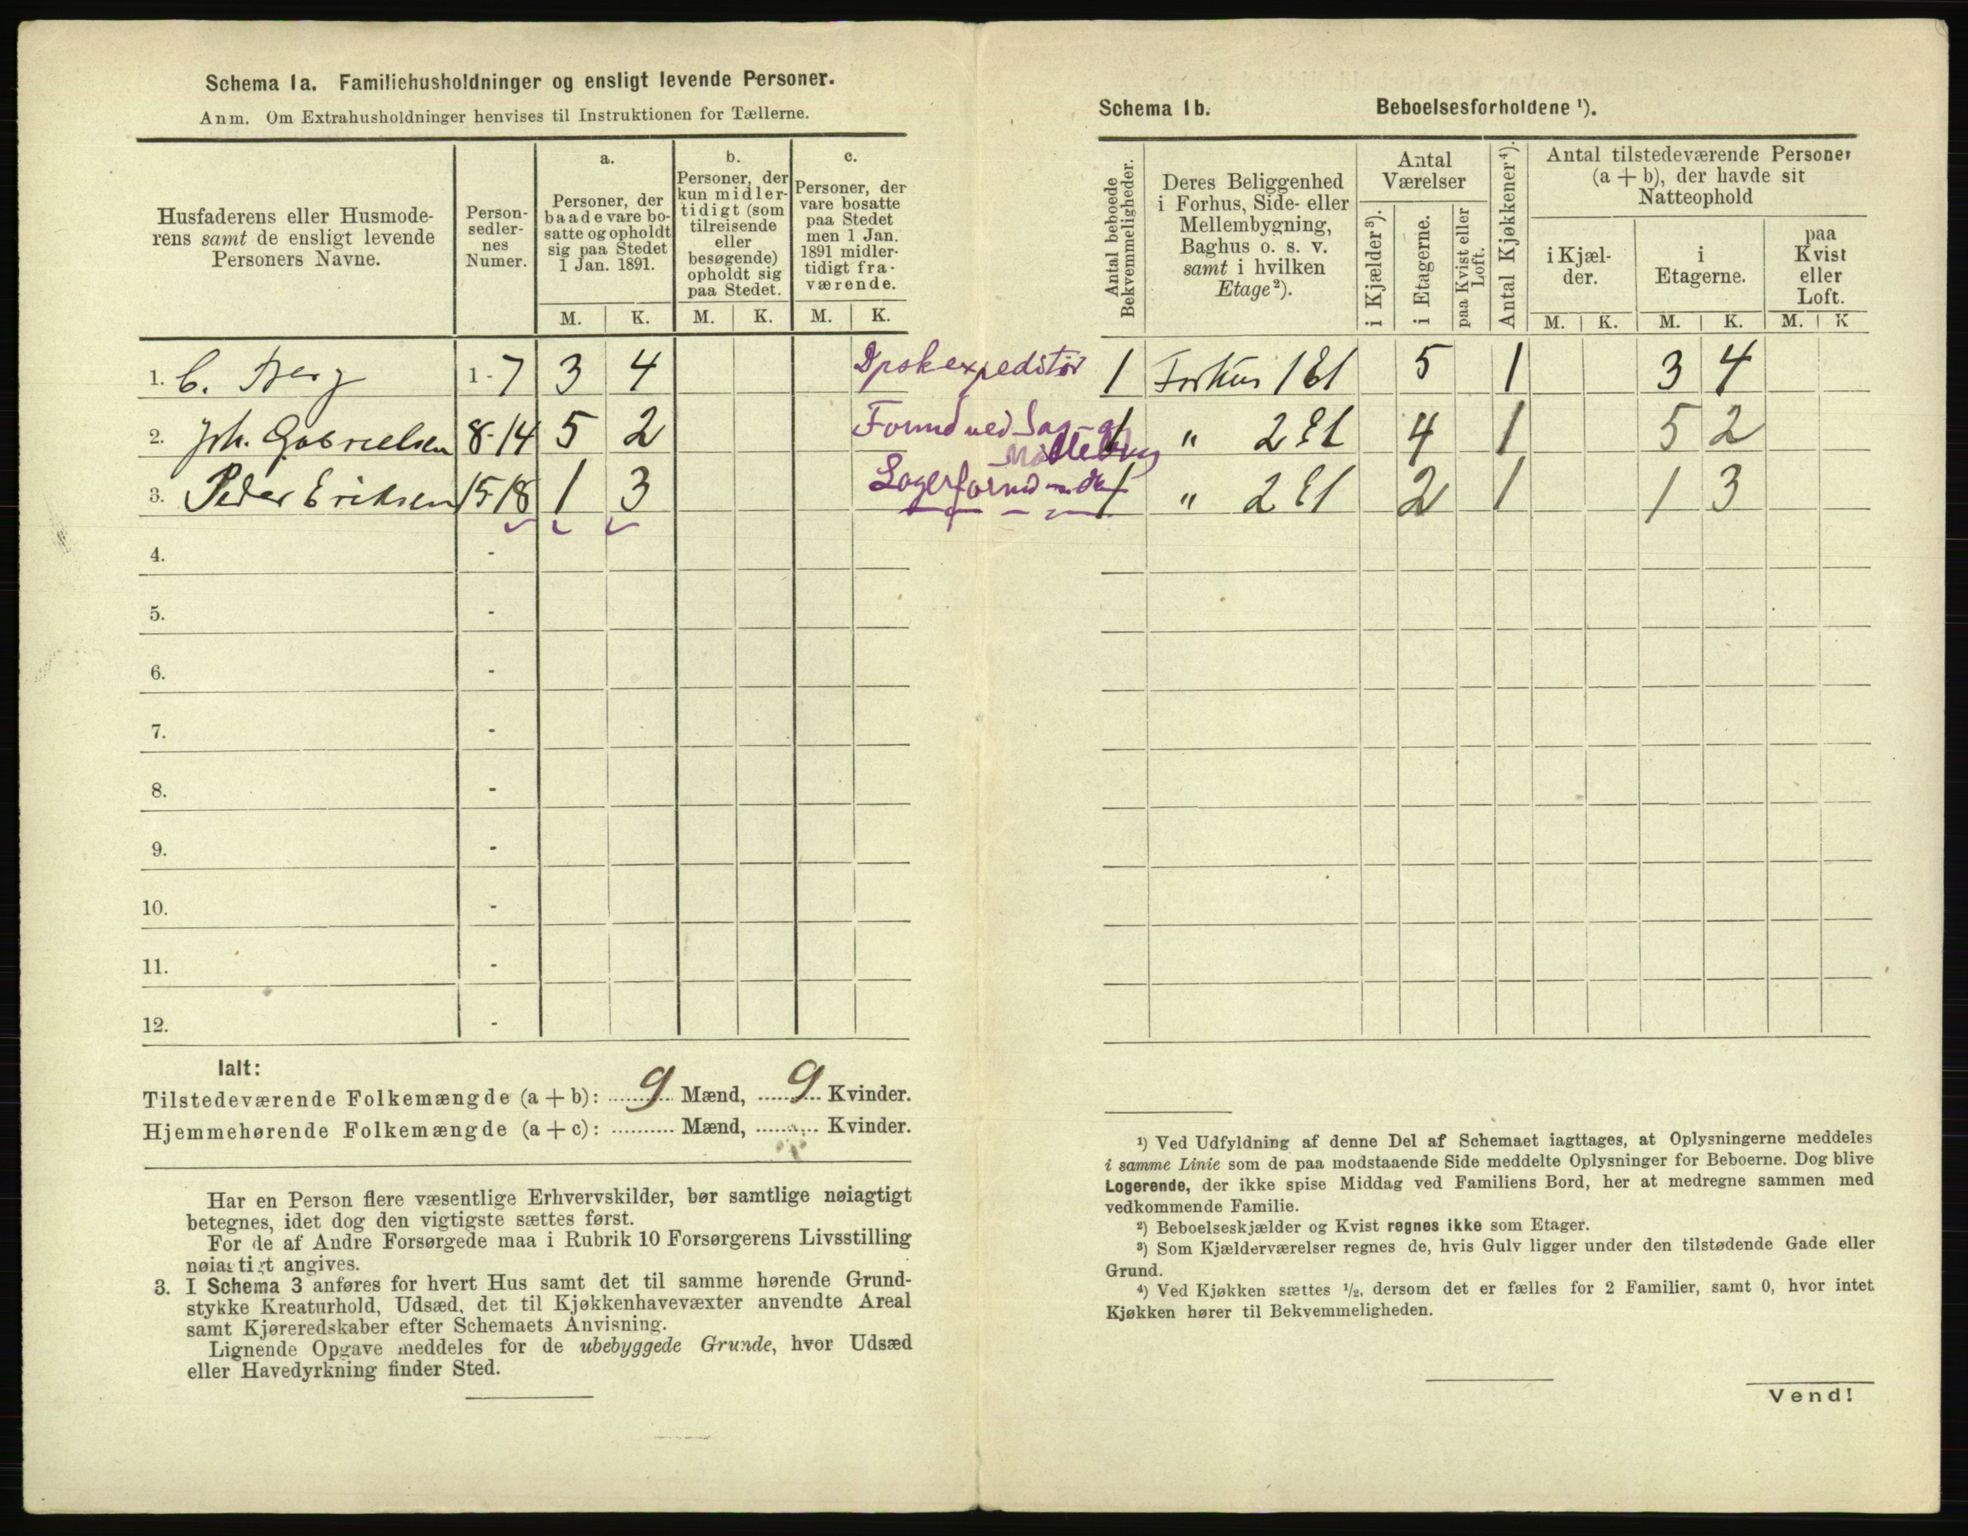 Schema 1a. Familiehusholdninger og ensligt levende Personer.
Anm. Om Extrahusholdninger henvises til Instruktionen for Tællerne.
Husfaderens eller Husmode-
rens samt de ensligt levende
Personers Navne.
Person-
sedler-
nes
Numer.
a.
Personer, der
baade vare bo-
satte og opholdt
sig paa Stedet
1 Jan. 1891.
b.
Personer, der
kun midler-
tidigt (som
tilreisende
eller
besøgende)
opholdt sig
paa Stedet.
c.
Personer, der
vare bosatte
paa Stedet
men 1 Jan.
1891 midler-
tidigt fra-
værende.
M. K. M. K. M. K.
1. C. Berg 1-7 3 4
2. Joh. Gabrielsen 8-14 5 2
3. Peder Eriksen 15-18 1 3
4. -
5. -
6. -
7. -
8. -
9. -
10. -
11. -
12. -
Ialt:
Tilstedeværende Folkemængde (a + b): 9 Mænd, 9 Kvinder.
Hjemmehørende Folkemængde (a + c): .......... Mænd, .......... Kvinder.
Har en Person flere væsentlige Erhvervskilder, bør samtlige nøiagtigt
betegnes, idet dog den vigtigste sættes først.
For de af Andre Forsørgede maa i Rubrik 10 Forsørgerens Livsstilling
nøiagtigt angives.
3. I Schema 3 anføres for hvert Hus samt det til samme hørende Grund-
stykke Kreaturhold, Udsæd, det til Kjøkkenhavevæxter anvendte Areal
samt Kjøreredskaber efter Schemaets Anvisning.
Lignende Opgave meddeles for de ubebyggede Grunde, hvor Udsæd
eller Havedyrkning finder Sted.
Schema 1b. Beboelsesforholdene ¹).
Antal beboede
Bekvemmeligheder.
Deres Beliggenhed
i Forhus, Side- eller
Mellembygning,
Baghus o. s. v.
samt i hvilken
Etage ²).
Antal
Værelser
i Kjælder ³).
i Etagerne.
paa Kvist eller
Loft.
Antal Kjøkkener ⁴).
Antal tilstedeværende Personer
(a + b), der havde sit
Natteophold
i Kjæl-
der.
i
Etagerne.
paa
Kvist
eller
Loft.
M. K. M. K. M. K
Dpskexpeditør 1 Forhus 1 Et 5 1 3 4
Formd ved Sag- 1 " 2 Et 4 1 5 2
Lagerformd 1 " 2 Et 2 1 1 3
¹) Ved Udfyldning af denne Del af Schemaet iagttages, at Oplysningerne meddeles
i samme Linie som de paa modstaaende Side meddelte Oplysninger for Beboerne. Dog blive
Logerende, der ikke spise Middag ved Familiens Bord, her at medregne sammen med
vedkommende Familie.
²) Beboelseskjælder og Kvist regnes ikke som Etager.
³) Som Kjælderværelser regnes de, hvis Gulv ligger under den tilstødende Gade eller
Grund.
⁴) Ved Kjøkken sættes ½, dersom det er fælles for 2 Familier, samt 0, hvor intet
Kjøkken hører til Bekvemmeligheden.
Vend!